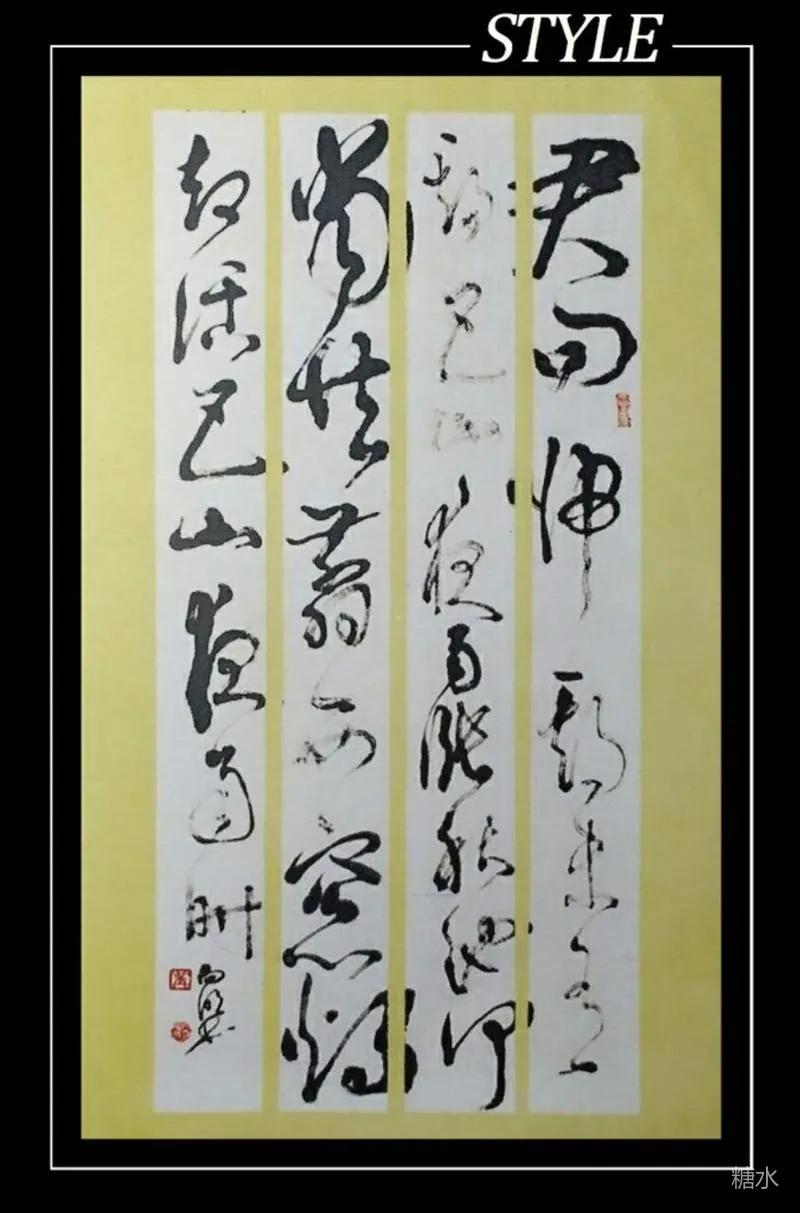 STYLE
君问歸期未有
期巴山夜雨漲秋池何
當共翦西窓燭
却話巴山夜雨时
糖水